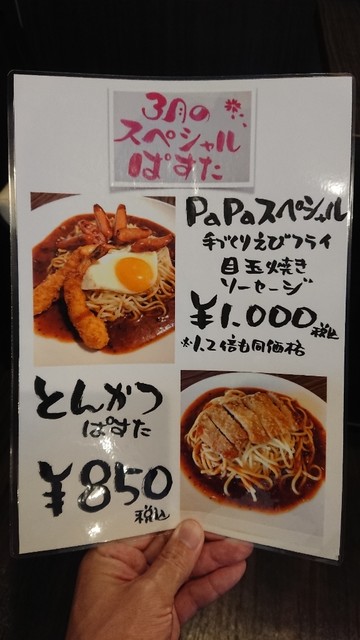 3月の
スペシャル
ぱすた
PaPaスペシャル
手づくりえびフライ
目玉焼き
ソーセージ
¥1,000税込
※1.2倍も同価格
とんかつ
ぱすた
¥850
税込